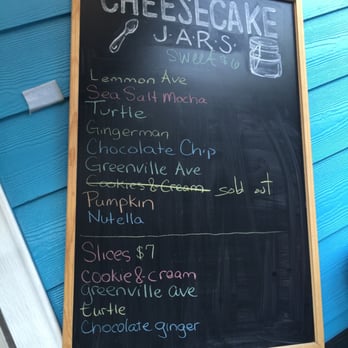 CHEESECAKE
JARS
SWEET $6
Lemmon Ave
Sea Salt Mocha
Turtle
Gingerman
Chocolate Chip
Greenville Ave
Cookies & Cream sold out
Pumpkin
Nutella
Slices $7
cookie & cream
greenville ave
turtle
Chocolate ginger